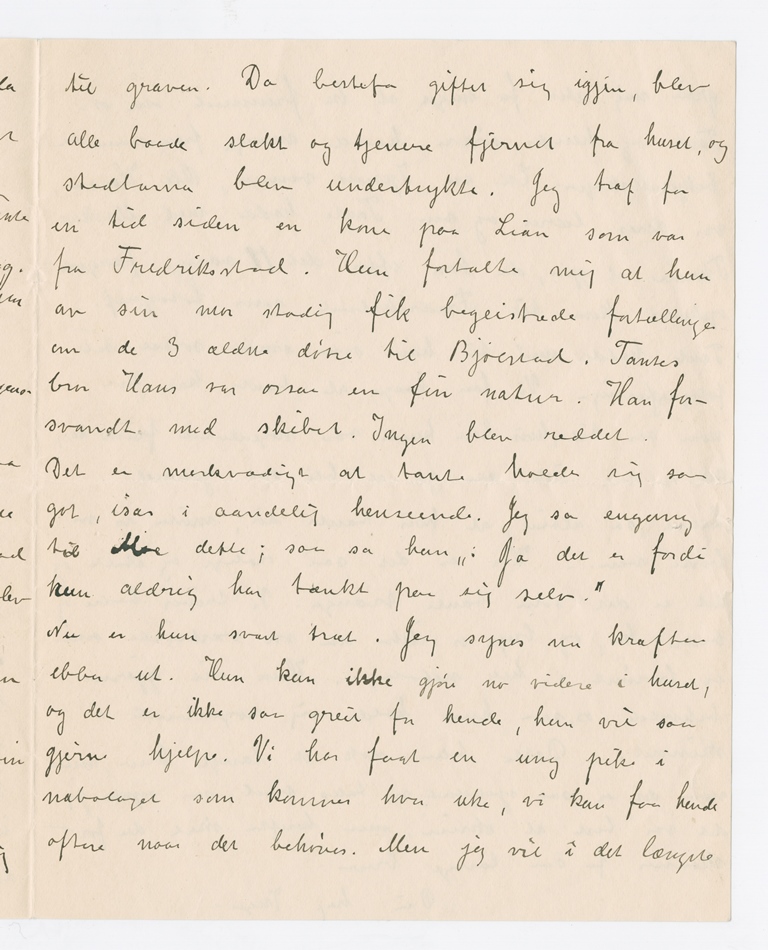 til graven. Da bestefa gifter sig igjen, blev
alle baade slækt og tjenere fjernet fra huset, og
stedbarna blev undertrykte. Jeg traf for
en tid siden en kone paa Lian som var
fra Fredriksstad. Hun fortalte mig at hun
av sin mor stadig fik begeistrede fortællinger
om de 3 ældste døtre til Bjølstad. Tantes
bror Hans var ossaa en fin natur. Han for-
svandt med skibet. Ingen blev reddet.
Det er merkværdigt at tante holder sig saa
got, især i aandelig henseende. Jeg sa engang
til Moe dette; saa sa han „: Ja det er fordi
hun aldrig har tænkt paa sig selv."
Nu er hun svært træt. Jeg synes nu kræftene
ebber ut. Hun kan ikke gjøre no videre i huset,
og det er ikke saa greit for hende, hun vil saa
gjerne hjelpe. Vi har faat en ung pike i
nabolaget som kommer hver uke, vi kan faa hende
oftere naar det behøves. Men jeg vil i det længste